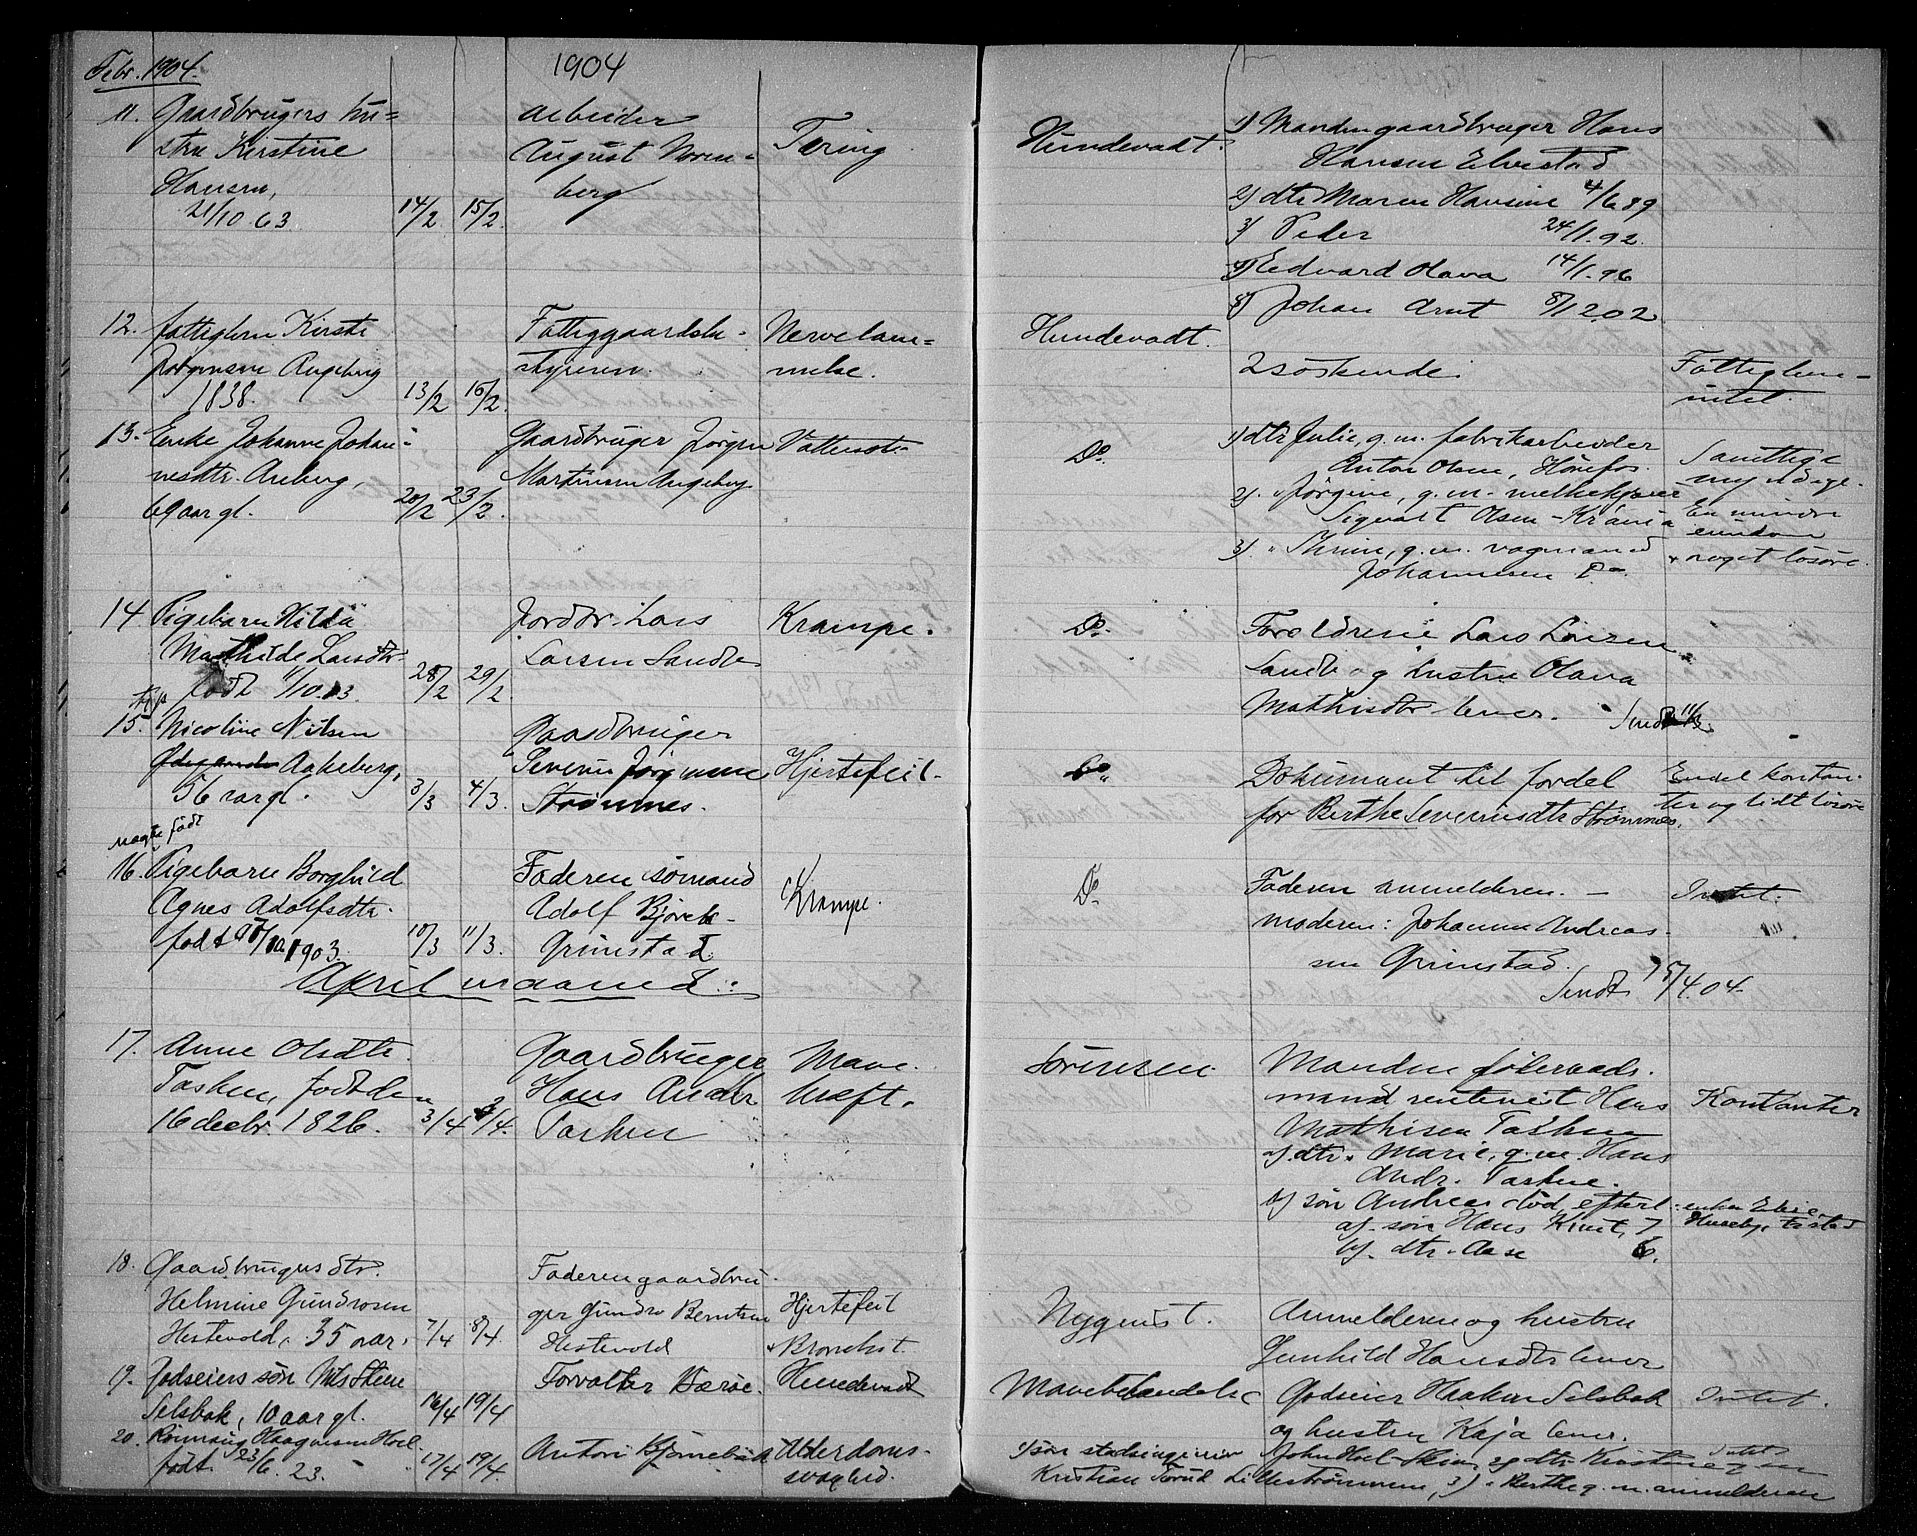 Febr. 1904.
1904
11. Gaardbrugers hu=
stru Kirstine
Hansen,
21/10.63 14/2 15/2
Arbeider
August Noren=
berg
Tæring
Hundevadt.
1) Manden gaardbruger Hans
Hansen Elvestad
2) dtr Maren Hansine 4/6 89
3) Peder 24/1.92.
4) Edvard Olava 14/1.96
5) Johan Arnt 8/12.02
12. fattiglem Kirsti
Jørgensen Augeberg
1838. 13/2 15/2.
Fattiggaardsbe-
styreren.
Nervelam=
melse.
Hundevadt.
2 søskende.
Fattiglem-
intet.
13. Enke Johanne Johan-
nesdtr. Aaberg,
69 aar gl. 20/2 23/2.
Gaardbruger Jørgen
Martinsen Augeberg
Vattersot.
Do.
1) dtr Julie, g. m. fabrikarbeider
Anton Olsen, Hønefos.
2) " Jørgine, g. m. melkekjører
Sigvart Olsen - Kr.ania
3) " Thrine, g. m. vognmand
Johannesen Do.
Samtlige
myndige.
En mindre
eiendom
+ noget løsøre.
14 Pigebarn Hilda
Mathilde Larsdtr.
født 11/10.03 28/2 29/2.
Jordbr. Lars
Larsen Sandb
Krampe.
Do.
Forældrene Lars Larsen
Sandb og hustru Olava
Mathisdtr lever. Sendt 11/3
15. Nicoline Nilsen
Aakeberg,
56 aar gl. 3/3 4/3.
Gaardbruger
Severin Jørgensen
Strømnes.
Hjertefeil.
Do.
Dokument til fordel
for Berthe Severinsdtr Strømnes.
Endel kontan-
ter og lidt løsøre
født
16. Pigebarn Borghild
Agnes Adolfsdtr.
født 1903. 10/3 11/3.
Faderen sømand
Adolf Bjørck-
Grimstad.
Krampe.
Do.
Faderen anmelderen. -
moderen: Johanne Andreas-
sen Grimstad.
Sendt 5/4.04.
Intet.
April maaned:
17. Anne Olsdtr.
Tasken, født den
16 decbr. 1826. 3/4 /4.
Gaardbruger
Hans Andr
Tasken
Mave
kræft.
Sørensen.
Manden føderaads-
mand rentenist Hans
Mathisen Tasken
a) dtr. Marie, g. m. Hans
Andr. Tasken.
b) søn Andreas død, efterl.
a) søn Hans Knut, 7
b) dtr. Aase 6.
Kontanter
18. Gaardbrugers dtr.
Helmine Gundrosen
Hestevold. 35 aar. 7/4 8/4.
Faderen gaardbru-
ger Gundro Berntsen
Hestevold
Hjertefeil
+ Bronchit.
Nygaist.
Anmelderen og hustru
Gunhild Hansdtr lever
19. Godseiers søn Nils Stene
Selsbak, 10 aar gl. 16/4 19/4
Forvalter Værøe.
Hundevadt
Mavebetændelse
Godseier Haaken Selsbak
og hustru Kaja lever.
Intet.
20. Haagensen Hoel.
født 23/6.23. 17/4 19/4
Anton Bjørnebæk
Alderdoms-
svaghed.
1) søn stadsingeniør John Hoel-Skien, 2) dtr Kirstine g m
Kristian Torud Lillestrømmen, 3) " Berthe g. m. anmelderen
Intet